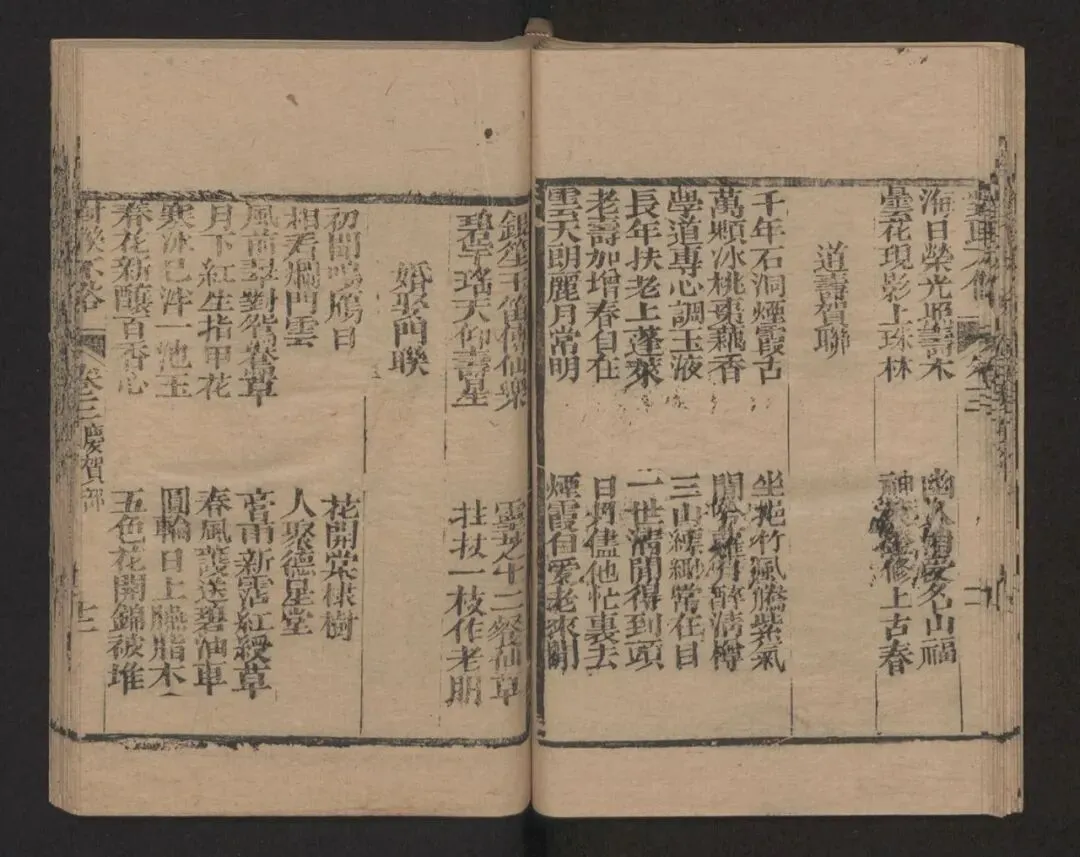 海日榮光照
幽 名山福
曇花現影上珠林
修上古春
道壽賀聯
千年石洞煙霞古
坐挹竹風騰紫氣
萬顆冰桃棗藕香
清樽
學道專心調玉液
三山縹緲常在目
長年扶老上蓬萊
一世清閒得到頭
老壽加增春自在
日月儘他忙裏去
雲天朗麗月常明
煙霞自愛老來閒
仙樂
靈芝十二餐仙草
碧 瑤天仰壽星
拄杖一枝作老朋
婚娶門聯
初聞鳴鴈日
花開棠棣樹
相看爛門雲
人聚德星堂
風前翠對鴛鴦草
宮 新 紅綬草
月下紅生指甲花
春風 送碧油車
寒冰已泮一池玉
圓輪日上臙脂木
春花新釀百香心
五色花開錦被堆
卷三慶賀部